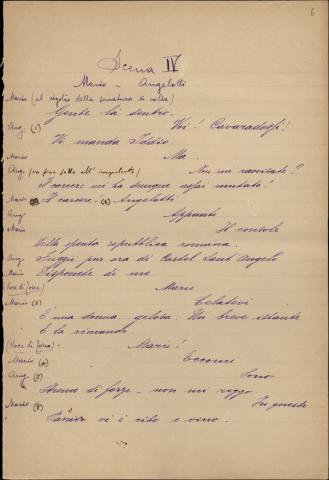 6
Scena IV
Mario - Angelotti
Mario (al cigolio della serratura si volta)
Gente là dentro.
Ang. (1) Voi! Cavaradossi!
Vi manda Iddio.
Mario Ma
Ang. (va fino sotto all' impalcato) Non mi ravvisate?
Il carcere mi ha dunque assai mutato!
Mario Il carcere! (2) Angelotti
Ang. Appunto
Mario Il console
Della spenta repubblica romana.
Ang. Fuggii pur ora di Castel Sant'Angelo
Mario Disponete di me.
(Voce di Tosca) Mario
Mario (3) Celatevi
È una donna gelosa. Un breve istante
E la rimando.
(Voce di Tosca) Mario!
Mario Eccomi
Ang. Sono
Stremo di forze - non mi reggo
Mario In questo
Panier vi è cibo e vino.